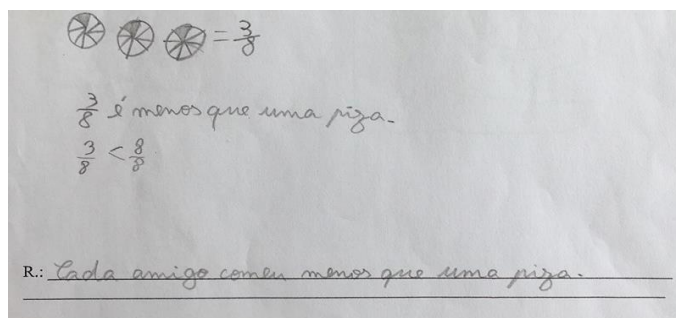 = 3/8
3/8 é menos que uma piza.
3/8 < 8/8
R.: Cada amigo comeu menos que uma piza.